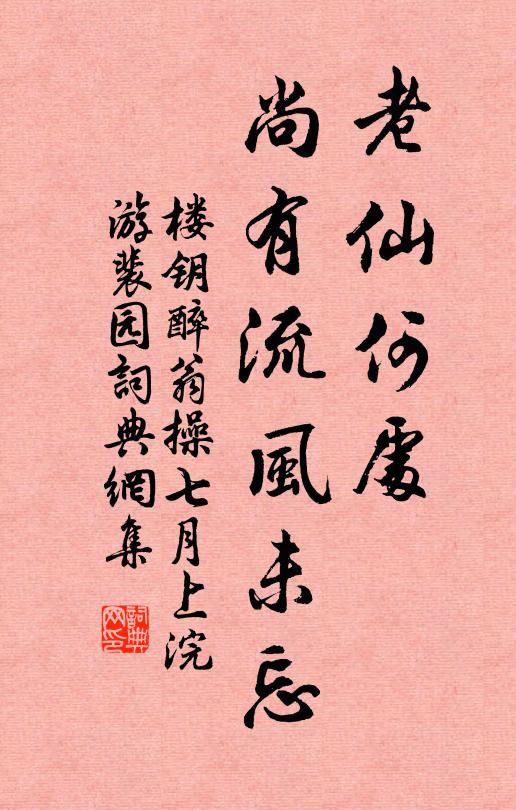 老仙何處
尚有流風未忘
楼钥醉翁操七月上浣
游裴园詞典網集
詞典
网印